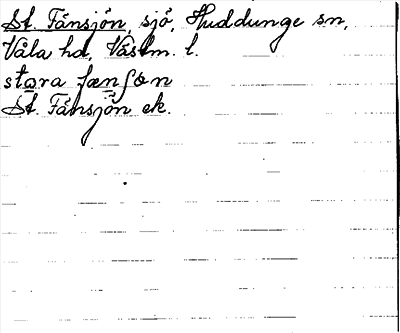 St. Fänsjön, sjö, Huddunge sn,
Våla hd, Västm. l.
stora fænʃön
St. Fänsjön ek.